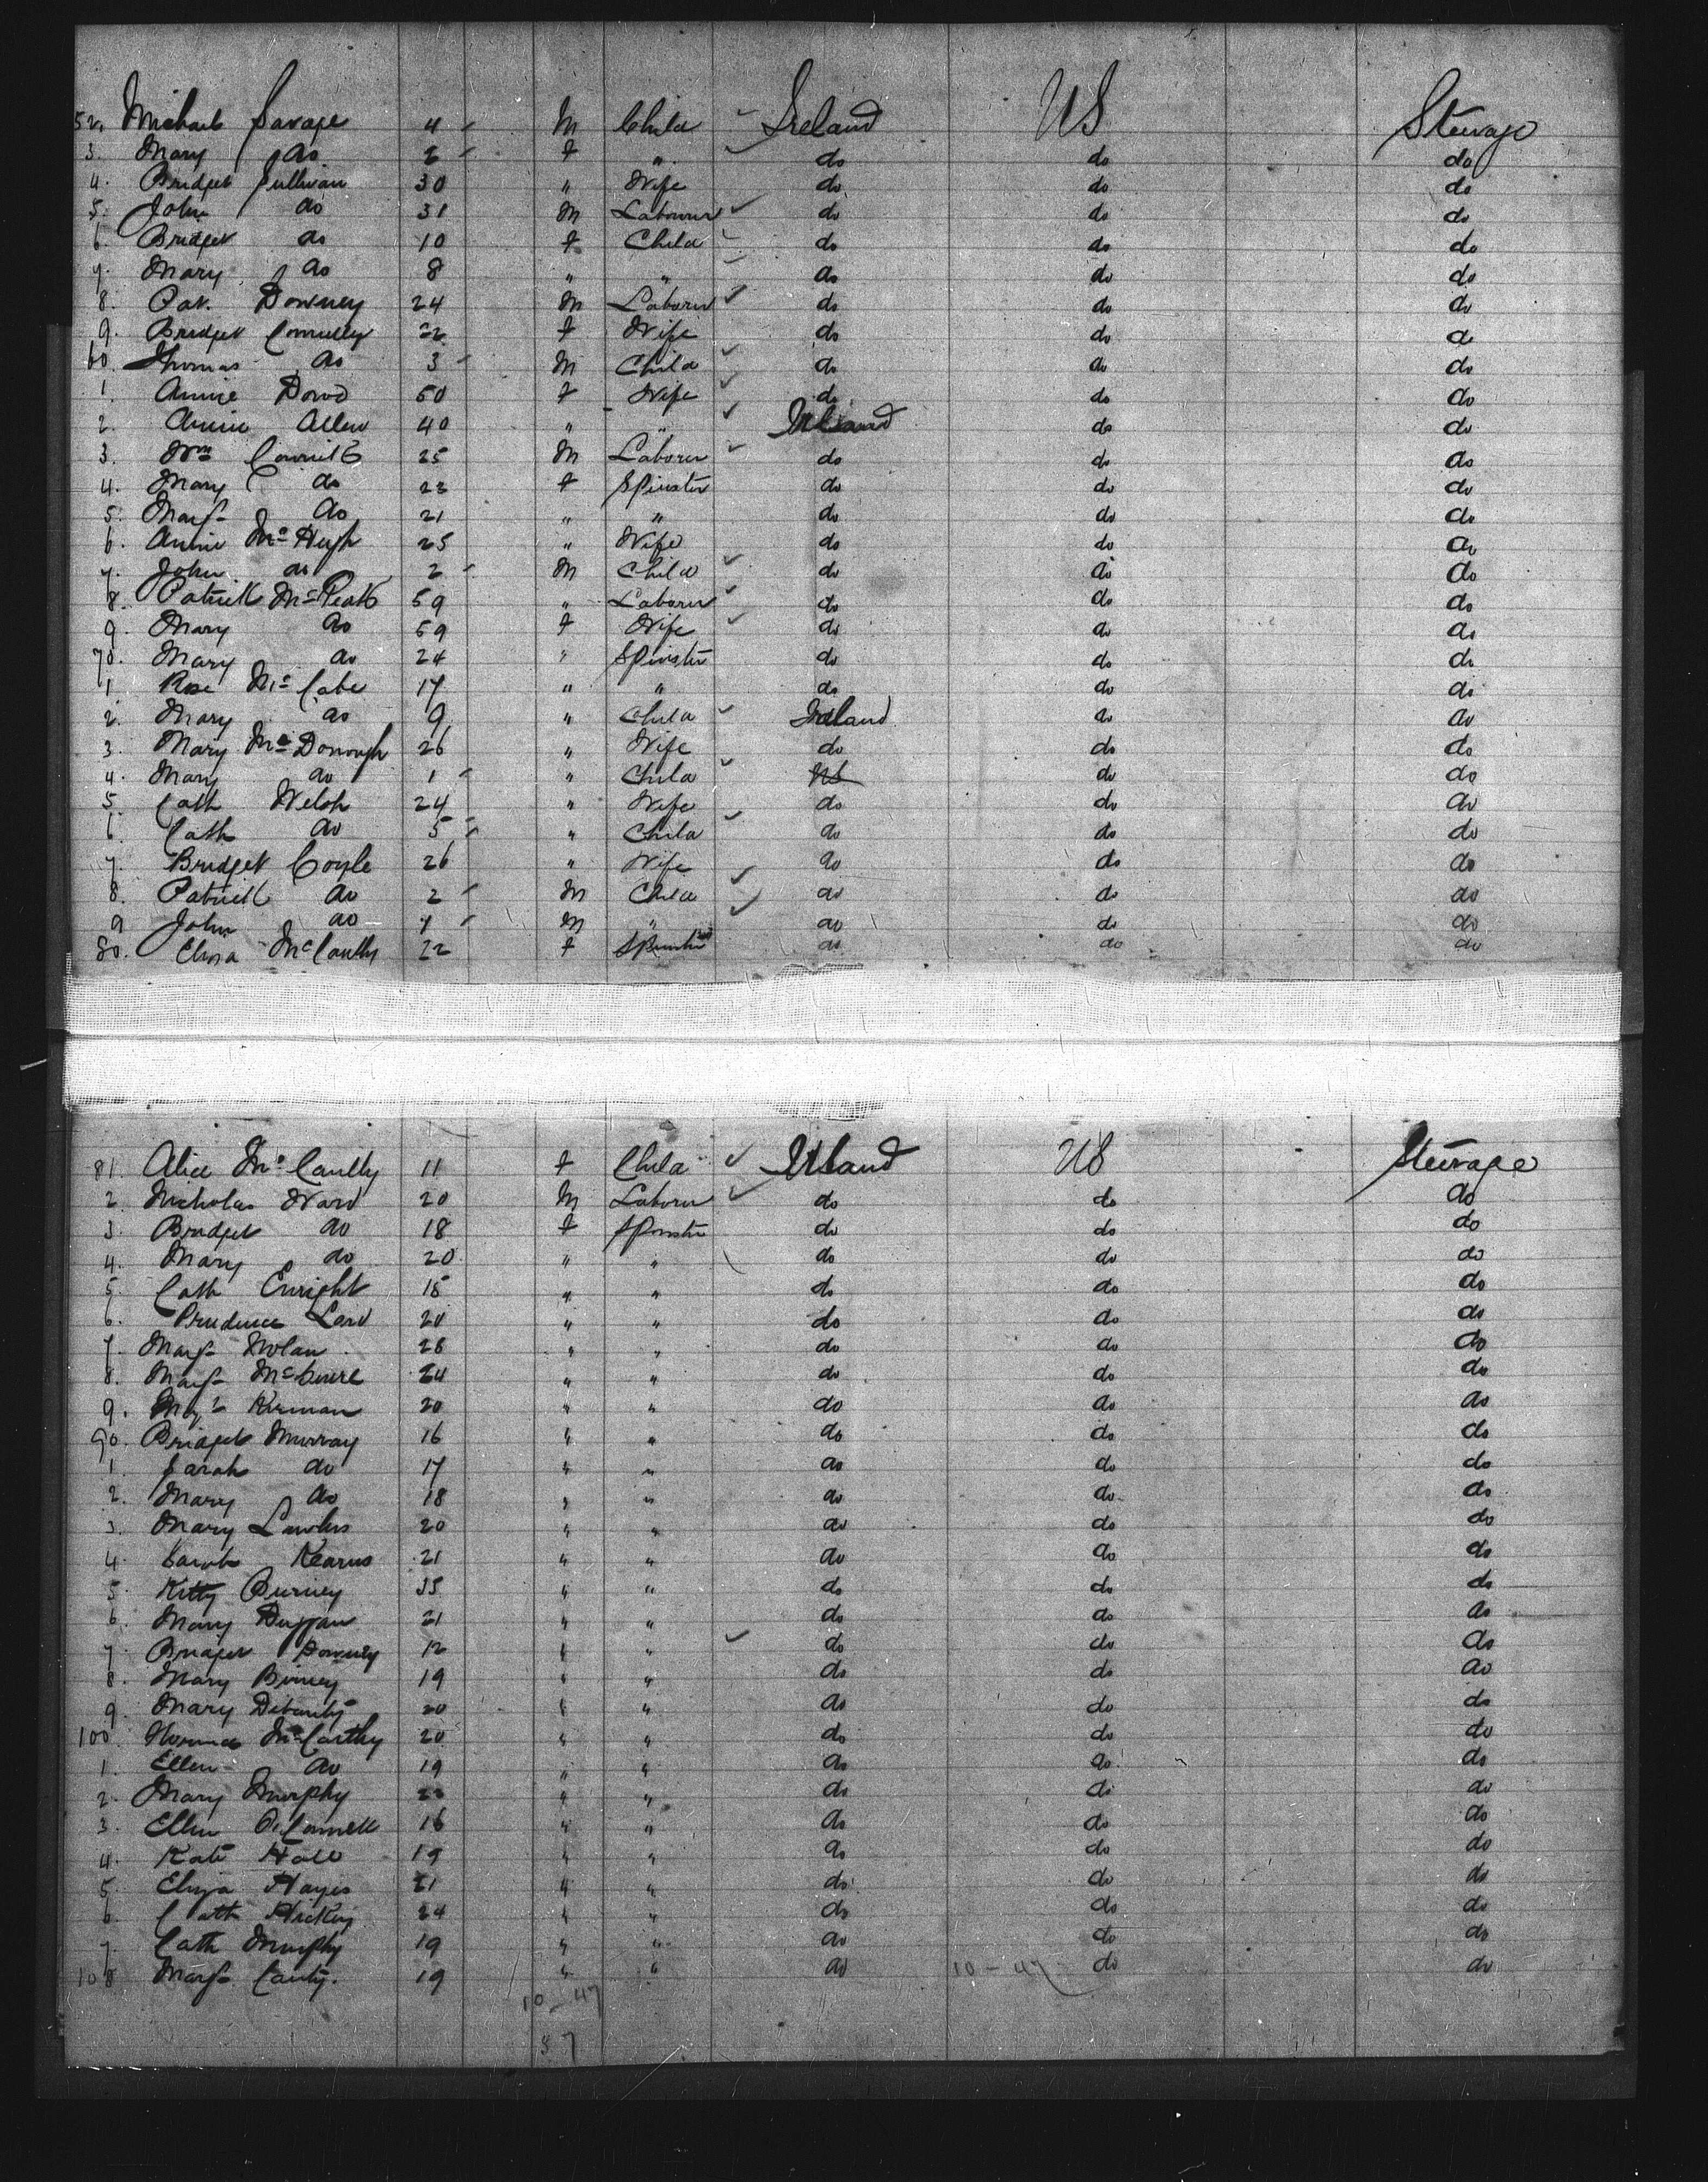 52. Michael Savage 4 M Child Ireland US Steerage
3. Mary do 2 f " do do do
4. Bridget Sullivan 30 " Wife do do do
5. John do 31 M Labourer do do do
6. Bridget do 10 f Child do do do
7. Mary do 8 " " do do do
8. Pat. Downey 24 M Laborer do do do
9. Bridget Connelly 22 f Wife do do do
60. Thomas do 3 M Child do do do
1. Annie Dowd 50 f Wife do do do
2. Annie Allen 40 " " Ireland do do
3. Wm 25 M Laborer do do do
4. Mary do 23 f Spinster do do do
5. Margt do 21 " " do do do
6. Annie McHugh 25 " Wife do do do
7. John do 2 M Child do do do
8. Patrick 59 " Laborer do do do
9. Mary do 59 f Wife do do do
70. Mary do 24 " Spinster do do do
1 Rose McCabe 17 " " do do do
2. Mary do 9 " Child Ireland do do
3. Mary McDonough 26 " Wife do do do
4. Mary do 1 " Child US do do
5. Cath Welsh 24 " Wife do do do
6. Cath do 5 " Child do do do
7. Bridget Coyle 26 " Wife do do do
8. Patrick do 2 M Child do do do
9 John do 1 M " do do do
80. Eliza McCaully 22 f Spinster do do do
81. Alice McCaully 11 f Child Ireland US Steerage
2. Nicholas Ward 20 M Laborer do do do
3. Bridget do 18 f Spinster do do do
4. Mary do 20 " " do do do
5. Cath Enright 18 " " do do do
6. Prudence 20 " " do do do
7. Margt Nolan 28 " " do do do
8. Margt McGuire 24 " " do do do
9. Margt Kirman 20 " " do do do
90. Bridget Murray 16 " " do do do
1. Sarah do 17 " " do do do
2. Mary do 18 " " do do do
3. Mary Lawless 20 " " do do do
4. Sarah Kearns 21 " " do do do
5 Kitty Burney 35 " " do do do
6. Mary Duggan 21 " " do do do
7 Bridget Downey 12 " " do do do
8. Mary Birney 19 " " do do do
9 Mary 20 " " do do do
100 McCarthy 20 " " do do do
1. Ellen do 19 " " do do do
2. Mary Murphy 22 " " do do do
3. Ellen O'Connell 16 " " do do do
4. Kate Hall 19 " " do do do
5. Eliza Hayes 21 " " do do do
6. Cath Hickey 24 " " do do do
7. Cath Murphy 19 " " do do do
108 Margt Canty. 19 " " do 10-47 do do
10-47